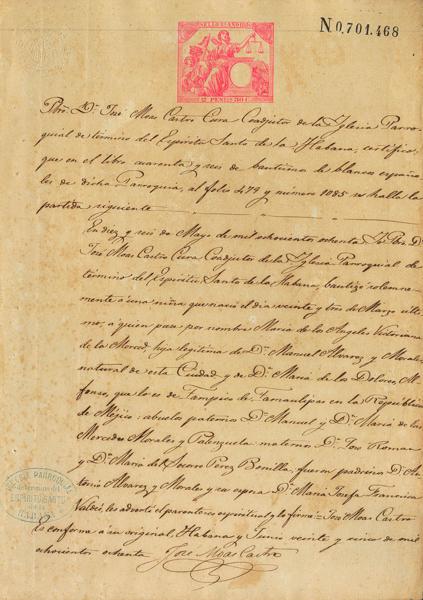 N0,701.468
Pbro. Dn. José Moas Castro Cura Coadjutor de la Iglesia Parro-
quial de término del Espíritu Santo de la Habana, certifico
que en el libro cuarenta y seis de bautismo de blancos españo-
les de dicha Parroquia, al folio 479 y número 1085 se halla la
partida siguiente
En diez y seis de Mayo de mil ochocientos ochenta Yo Pbro. D.
José Moas Castro Cura Coadjutor de la Iglesia Parroquial de
término del Espíritu Santo de la Habana, bautizó solemne-
mente á una niña que nació el día veinte y tres de Marzo últi-
mo, á quien puse por nombre María de los Angeles Victoriana
de la Merced, hija legítima de Dn. Manuel Alvarez y Morales
natural de esta Ciudad y de Da. María de los Dolores Al-
fonso, que lo es de Tampico de Tamaulipas en la República
de Méjico: abuelos paternos Dn. Manuel y Da. María de las
Mercedes Morales y Palenzuela maternos Dn. José Roman
y Da. María del Socorro Perez Bonilla, fueron padrinos Dn. An-
tonio Alvarez y Morales y su esposa Da. María Josefa Francisca
Valdés, les advertí el parentesco espiritual y lo firmé = José Moas Castro
Es conforme á su original. Habana y Junio veinte y cinco de mil
ochocientos ochenta
José Moas Castro
ESPIRITU SANTO